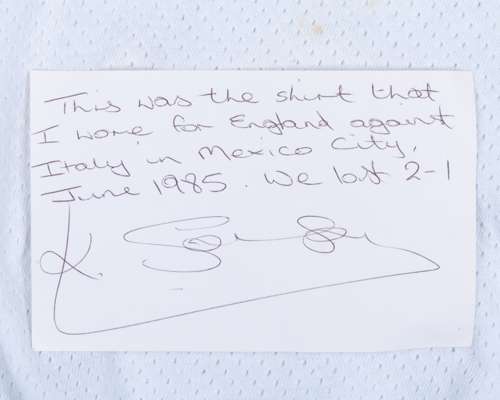 This was the shirt that
I wore for England against
Italy in Mexico City,
June 1985. We lost 2-1
K. Sansom